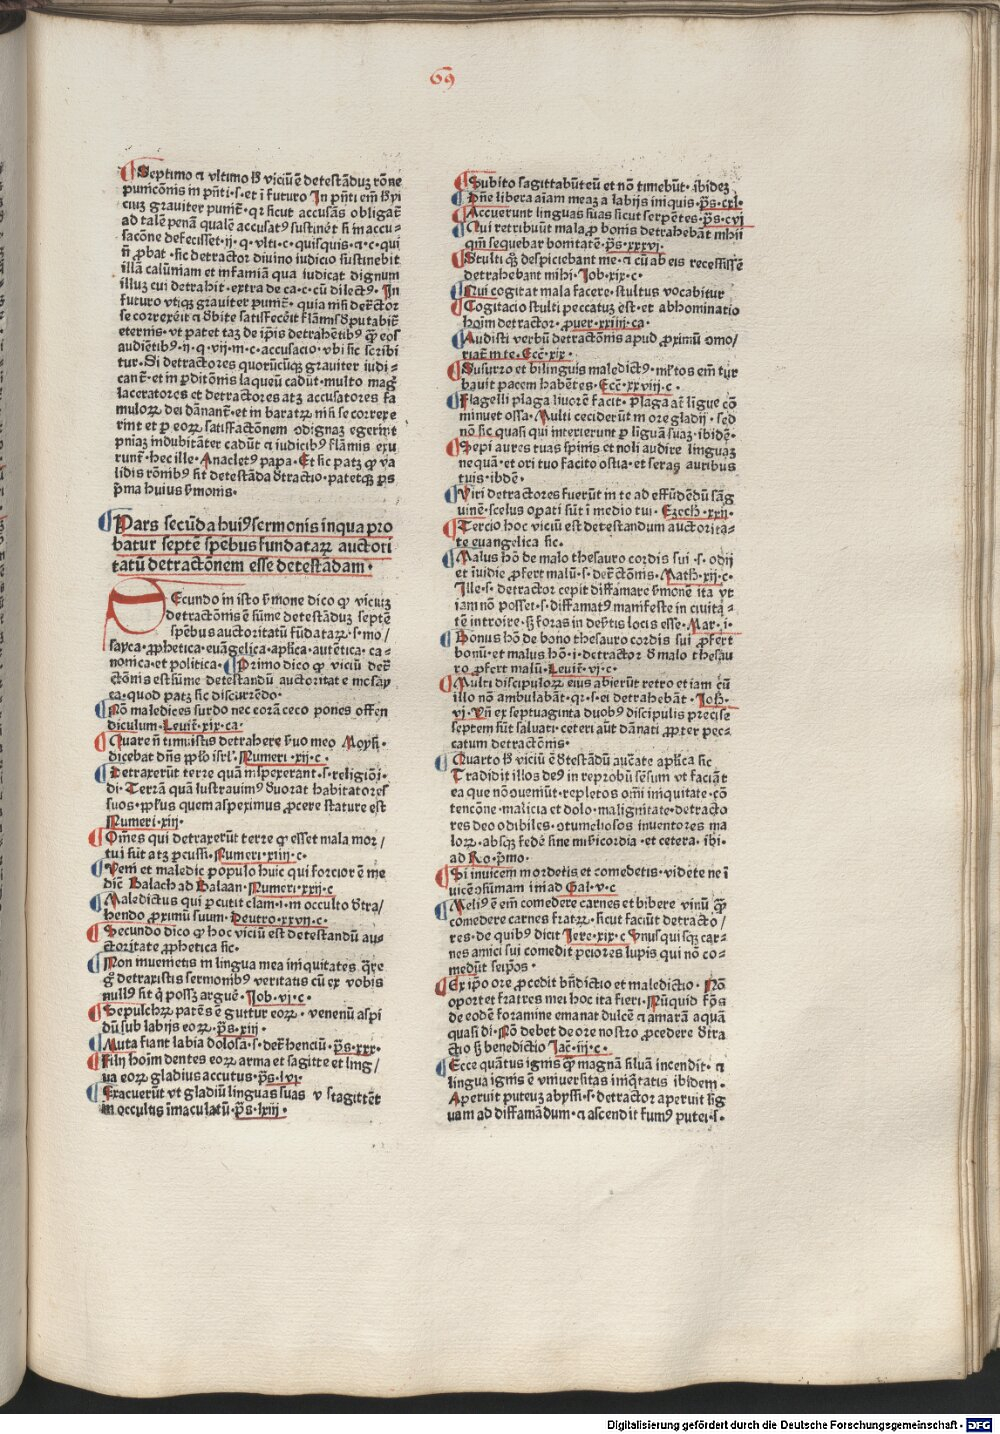 69
Septimo ⁊ vltimo ħ viciū ē detestāduꝫ rōne
punicōnis in pn̄ti·s·et ī futuro In pn̄ti em̄ ħꝰi
ciuꝫ grauiter punit᷑· qꝛ sicut accusās obligat᷑
ad talē penā qualē accusatꝰ sustinet si in accu⸗
sacōne defecisset·ij·q·vlti·c·quisquis·⁊·c·qui
nō ꝓbat·sic detractor diuino iudicio sustinebit
illā calūniam et infamiā qua iudicat dignum
illuꝫ cui detrahit·extra de ca·c·cū dilectꝰ· In
futuro vtiqꝫ grauiter punit᷑· quia nisi det᷑ctor
se correxerit ⁊ debite satisfecerit flāmis deputabit᷑
eternis·vt patet taꝫ de ip̄is detrahētibꝰ ꝙ eos
audiētibꝰ·ij·q·vij·in·c·accusacio·vbi sic scribi
tur·Si detractores quorūcūqꝫ grauiter iudi⸗
cant᷑·et in ꝑditōnis laqueū cadūt·multo magꝭ
laceratores et detractores atꝫ accusatores fa
muloꝝ dei dānant᷑·et in baratꝝ nisi se correxe
rint et ꝑ eoꝝ satisfactōnem ꝯdignaꝫ egerint
pn̄iaꝫ indubitāter cadūt ⁊ iudicibꝰ flāmis exu
runt᷑·hec ille·Anacletꝰ papa·Et sic patꝫ ꝙ va
lidis rōnibꝰ sit detestāda detractio·patetqꝫ ꝑs
pꝛma huius ẜmonis·
Pars secūda huiꝰ sermonis in qua pro
batur septē spēbus fundataꝝ auctori
tatū detractōnem esse detestādam·
SEcundo in isto ẜmone dico ꝙ viciuꝫ
detractōnis ē sūme detestāduꝫ septē
spēbus auctoritatū fūdataꝝ·s·mo/
sayca·ꝓphetica·euāgelica·apl̄ica·autētica·ca⸗
nonica·et politica·Primo dico ꝙ viciū det᷑
ctōnis est sūme detestandū auctoritate mosay
ca·quod patꝫ sic discurrēdo·
Nō maledices surdo nec corā ceco pones offen
diculum·Leuit᷑·xix·ca·
Quare nō timuistis detrahere ẜuo meo Moysi·
dicebat dn̄s ppl̄o isrl̄·Numeri·xij·c·
Detraxerūt terre quā inspexerant·s·religiōi·
di·Terrā quā lustrauimꝰ deuorat habitatores
suos·ppl̄us quem aspeximus ꝓcere stature est
Numeri·xiij·
Om̄es qui detraxerūt terre ꝙ esset mala mor/
tui sūt atꝫ ꝑcussi·Numeri·xiiij·c·
Veni et maledic populo huic qui forcior ē me
dic̄ Balach ad Balaan·Numeri·xxij·c
Maledictus qui ꝑcutit clam·i·in occulto detra/
hendo ꝓximū suum·Deutro·xxvij·c·
Secundo dico ꝙ hoc viciū est detestandū au⸗
ctoritate ꝓphetica sic·
Non inuenietis in lingua mea iniquitates q̄re
gͦ detraxistis sermonibꝰ veritatis cū ex vobis
nullꝰ sit q̇ possꝫ arguē·Job·vj·c·
Sepulchꝝ patēs ē guttur eoꝝ·venenū aspi
dū sub labijs eoꝝ·pꝭs·xiij·
Muta fiant labia dolosa·s·det᷑henciū·pꝭs·xxx·
Filij hoīm dentes eoꝝ arma et sagitte et ling/
ua eoꝝ gladius accutus·pꝭs·lvi·
Exacuerūt vt gladiū linguas suas v stagittēt
in occultis īmaculatū·pꝭs·lxiij·
Subito sagittabūt eū et nō timebūt·ibideꝫ
Dn̄e libera aīam meaꝫ a labijs iniquis·pꝭs·cxl·
Accuerunt linguas suas sicut serpētes·pꝭs·cvj
Qui retribuūt mala ꝓ bonis detrahebāt mihi
qm̄ sequebar bonitatē·pꝭs·xxxvj·
Stulti qꝫ despiciebant me·⁊ cū ab eis recessissē
detrahebant mihi·Job·xix·c·
Qui cogitat mala facere·stultus vocabitur
Cogitacio stulti peccatuꝫ est·et abhominatio
hoīm detractor·ꝓuer·xxiiij·ca·
Audisti verbū detractōnis apud ꝓximū ꝯmo/
riat᷑ in te·Ecc̄·xix·
Susurro et bilinguis maledictꝰ·ml̄tos em̄ tur
bauit pacem habētes·Ecc̄·xxviij·c·
Flagelli plaga liuorē facit·Plaga aūt līgue cō
minuet ossa·Multi ceciderūt in ore gladij·sed
nō sic quasi qui interierunt ꝑ liguā suaꝫ·ibidē·
Sepi aures tuas spinis et noli audire linguaꝫ
nequā·et ori tuo facito ostia·et seras auribus
tuis·ibdē·
Viri detractores fuerūt in te ad effūdēdū sāg
uinē·scelus oꝑati sūt ī medio tui·Ezech·xxij·
Tercio hoc viciū est detestandum auctorita⸗
te euangelica sic·
Malus hō de malo thesauro cordis sui·s·odij
et iuidie ꝓfert malū·s·det᷑ctōnis·Math·xij·c·
Ille·s·detractor cepit diffamare ẜmonē ita vt
iam nō posset·s·diffamatꝰ manifeste in ciuita⸗
tē introire·sꝫ foras in deẜtis locis esse·Mar·i·
Bonus hō de bono thesauro cordis sui ꝓfert
bonū·et malus hō·i·detractor de malo thesau
ro ꝓfert malū·Leuit᷑·vj·c·
Multi discipuloꝝ eius abierūt retro et iam cū
illo nō ambulabāt·qꝛ·s·ei detrahebāt·Joħ·
vj·Vn̄ ex septuaginta duobꝰ discipulis precise
septem sūt saluati·ceteri aūt dānati ꝓpter pec⸗
catum detractōnis·
Quarto ħ viciū ē detestādū auc̄ate apl̄ica sic
Tradidit illos deꝰ in reprobū sēsum vt faciāt
ea que nō ꝯueniūt·repletos om̄i iniquitate·cō
tencōne·malicia et dolo·malignitate·detracto
res deo odibiles·ꝯtumeliosos inuentores ma
loꝝ·absqꝫ fedē sine mīẜicordia·et cetera·ibi·
ad Ro·pꝛmo·
Si inuicem mordetis et comedetis·videte ne ī
uicē ꝯsūmam ini ad Gal·v·c
Meliꝰ ē em̄ comedere carnes et bibere vinū ꝙ̄
comedere carnes fratꝝ·sicut faciūt detracto/
res·de quibꝰ dicit Jere·xix·c Vnusquisqꝫ car⸗
nes amici sui comedit peiores lupis qui nō co⸗
medūt seip̄os·
Ex ip̄o ore ꝓcedit bn̄dictio et maledictio·Nō
oportet fratres mei hoc ita fieri·Nūquid fōs
de eodē foramine emanat dulcē ⁊ amarā aquā
quasi di·Nō debet de ore nostro ꝓcedere detra
ctio sꝫ benedictio Jac̄·iij·c·
Ecce quātus ignis ꝙ̄ magnā siluā incendit·⁊
lingua ignis ē vniuersitas inīqͣtatis ibidem·
Aperuit puteuꝫ abyssi·s·detractor aperuit lig
uam ad diffamādum·⁊ ascendit fumꝰ putei·s·
Digitalisierung gefördert durch die Deutsche Forschungsgemeinschaft · DFG